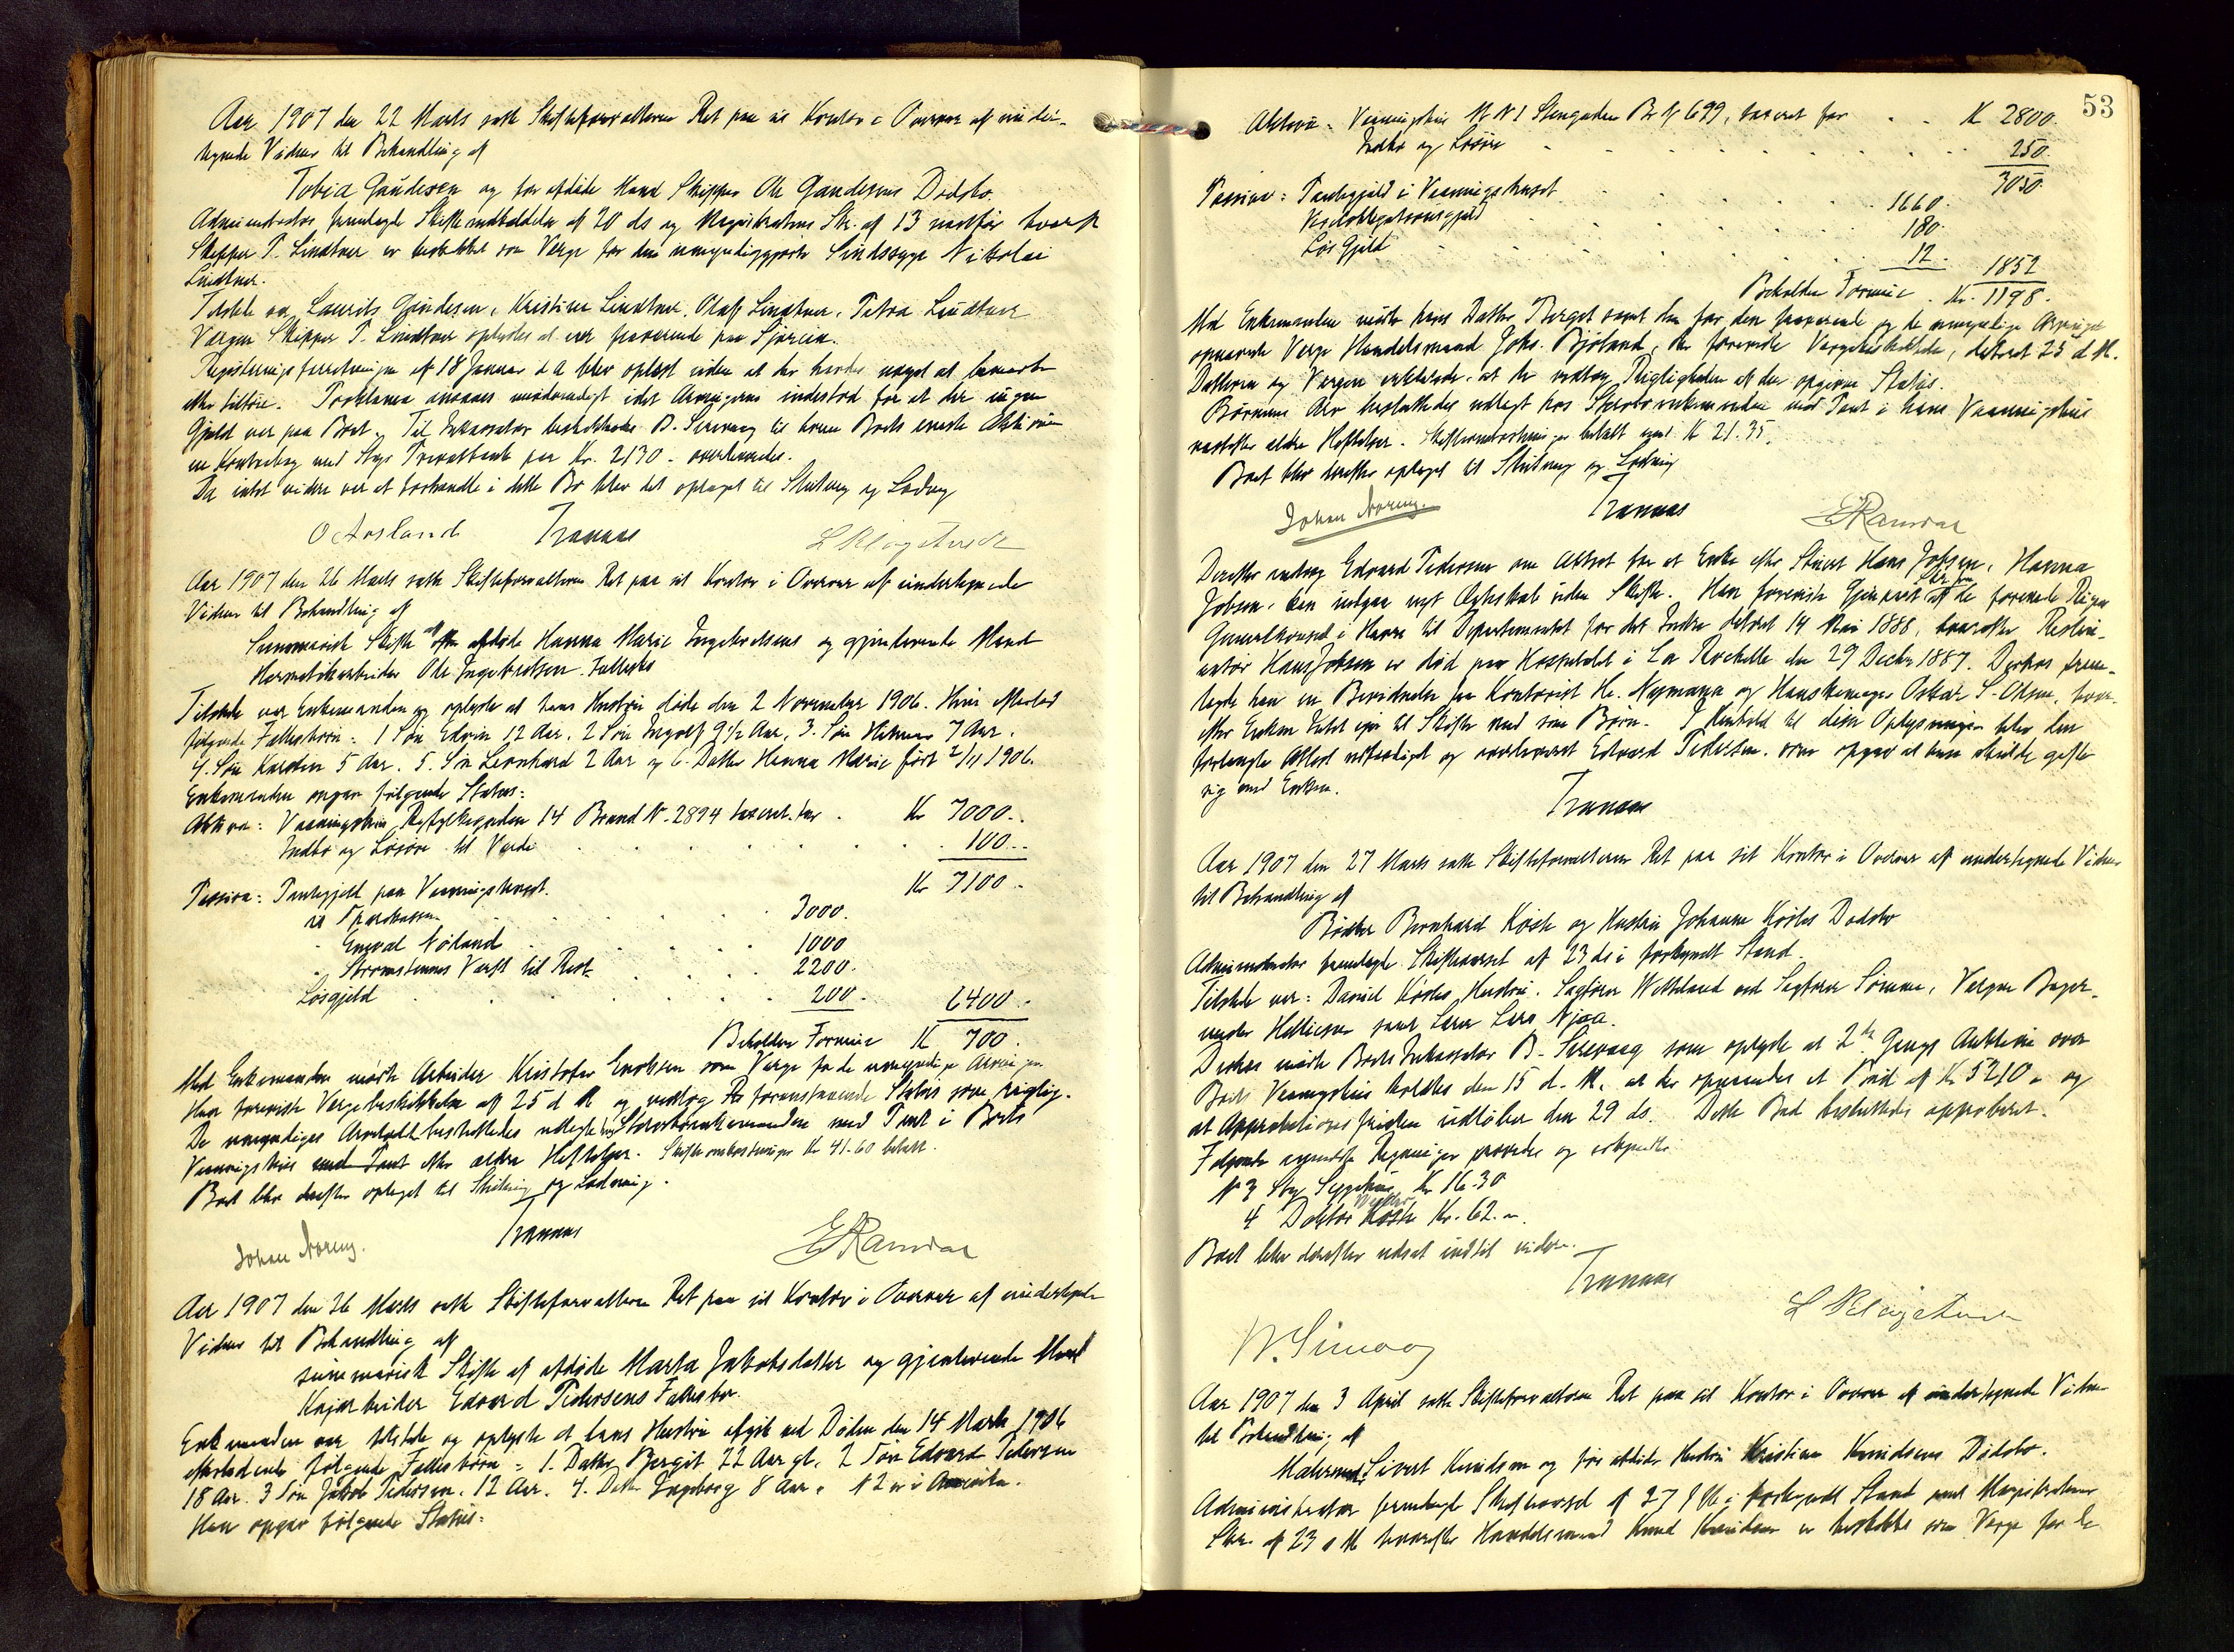 Aar 1907 den 22 Marts satte Skifteforvalteren Ret paa sit Kontor i Overvær af under-
tegnede Vidner til Behandling af
Tobia Gundersen og før afdøde Mand Skipper Ole Gundersens Dødsbo.
Administrator fremlagde Skifteindkaldelse af 20 ds og Magistratens Skr. af 13 hvorefter
Skipper P. Lindtner er beskikket som Verge for den umyndiggjorte Sindssyge Nikolai
Lindtner.
Tilstede var Laurits Gundersen, Kristine Lindtner, Olaf Lindtner, Petra Lindtner
Vergen Skipper P. Lindtner oplystes at være fraværende paa Sjøreise.
Registreringsforretningen af 18 Januar d A blev oplæst uden at der havdes noget at bemærke
eller tilføie. Proklama ansaaes unødvendigt idet Arvingerne indestod for at der ingen
Gjæld var paa Boet. Til Inkassator beskikkedes B. Severaag til hvem Boets eneste Aktivum
en Kontrabog med Stvgr Privatbank paa Kr. 2130 - overleveredes.
Da intet videre var at forhandle i dette Bo blev det optaget til Slutning og Lodning
O Aasland Tranaas L Klagstved
Aar 1907 den 26 Marts satte Skifteforvalteren Ret paa sit Kontor i Overvær af undertegnede
Vidner til Behandling af
Summarisk Skifte af afdøde Hanna Marie Ingebretsens og gjenlevende Mand
Hermetikarbeider Ole Ingebretsen Fællesbo
Tilstede var Enkemanden og oplyste at hans Hustru døde den 2 November 1906. Hun efterlod
følgende Fællesbørn: 1 Søn Edvin 12 Aar. 2 Søn Ingolf 9 1/2 Aar, 3. Søn Hilmar 7 Aar.
4. Søn Karsten 5 Aar. 5. Søn Leonhard 2 Aar og 6. Datter Hanna Marie født 2/11 1906.
Enkemanden opgav følgende Status:
Aktiva: Vaaningshus Ryfylkegaden 14 Brand N. 2894 taxeret for . Kr 7000..
Indbo og Løsøre til Værdi 100..
Kr 7100.
Passiva: Pantegjæld paa Vaaningshuset.
til Sparekassen 3000.
- Enevald Nøland 1000
- Strømstenes Værft til Rest 2200.
Løsgjæld 200. 6400.
Beholden Formue K 700.
Med Enkemanden mødte Arbeider Kristofer Enoksen som Verge for de umyndige Arvinger
Han foreviste Vergebeskikkelse af 25 d M og vedtog foranstaaende Status som rigtig.
De umyndiges Arvelodd besluttedes udlagt hos Stervboenkemanden med Pant i Boets
Vaaningshus med Pant efter ældre Heftelser. Skifteomkostninger Kr 41.60 betalt.
Boet blev derefter optaget til Slutning og Lodning.
Johan Noreng. Tranaas E Ramdal
Aar 1907 den 26 Marts satte Skifteforvalteren Ret paa sit Kontor i Overvær af undertegnede
Vidner til Behandling af
summarisk Skifte af afdøde Marta Jakobsdatter og gjenlevende Mand
Kajarbeider Edvard Pedersens Fællesbo.
Enkemanden var tilstede og oplyste at hans Hustru afgik ved Døden den 14 Marts 1906
efterladende følgende Fællesbørn = 1. Datter Berget 22 Aar gl, 2 Søn Edvard Pedersen
18 Aar. 3 Søn Jakob Pedersen. 12 Aar. 4. Datter Ingeborg 8 Aar. N 2 er i Amerika.
Han opgav følgende Status:
53
Aktiva: Vaaningshus M N 1 Stengaden Br N 699, taxeret for . . K 2800.
Indbo og Løsøre 250.
3050.
Passiva: Pantegjæld i Vaaningshuset 1660.
Vexelobligationsgjæld 180.
Løs Gjæld 12. 1852
Beholden Formue . Kr. 1198.
Med Enkemanden mødte hans Datter Berget samt den for den fraværende og de umyndige Arvinger
opnævnte Verge Handelsmand Johs. Bjøland, der foreviste Vergebeskikkelse, dateret 25 d M.
Datteren og Vergen erklærede, at de vedtog Rigtigheden af den opgivne Status.
Børnenes Arv besluttedes udlagt hos Stervboenkemanden med Pant i hans Vaaningshus
næstefter ældre Heftelser. Skifteomkostninger betalt med K 21.35.
Boet blev derefter optaget til Slutning og Lodning
Johan Noreng. Tranaas E Ramdal
Derefter androg Edvard Pedersen om Attest for at Enke efter Stuert Hans Jobsen, Hanna
Jobsen, kan indgaa nyt Ægteskab uden Skifte. Han foreviste Gjenpart af Skr fra de forenede Rigers
Generalkonsul i Havre til Departementet for det Indre dateret 14 Mai 1888, hvorefter Restau-
ratør Hans Jobsen er død paa Hospitalet i La Rochelle den 29 Decbr 1887. Derhos frem-
lagde han en Bevidnelse fra Kontorist Hr. Nymann og Handskemager Oskar S. Olsen, hvor-
efter Enken Intet eier til Skifte med sine Børn. I Henhold til disse Oplysninger blev den
forlangte Attest udfærdiget og overleveret Edvard Pedersen, som opgav at han skulde gifte
sig med Enken.
Tranaas
Aar 1907 den 27 Marts satte Skifteforvalteren Ret paa sit Kontor i Overvær af undertegnede Vidner
til Behandling af
Bødker Bernhard Køste og Hustru Johanne Køstes Dødsbo
Administrator fremlagde Skiftevarsel af 23 ds i forkyndt Stand.
Tilstede var: Daniel Køstes Hustru, Sagfører Wetteland ved Sagfører Sømme, Vergen Bager-
mester Helliesen samt Lærer Lars Njaa.
Derhos mødte Boets Inkassator B. Severaag som oplyste at 2den Gangs Auktion over
Boets Vaaningshus holdtes den 15 d. M. at der opnaaedes et Bud af Kr 5210 - og
at Approbationsfristen udløber den 29 ds. Dette Bud besluttedes approberet.
Følgende anmeldte Regninger prøvedes og erkjendtes
N 3 Stvg Sygehus Kr 16.30
4 Doktor Køste Kr. 62. -
Boet blev derefter udsat indtil videre.
Tranaas
L Klagstved
Aar 1907 den 3 April satte Skifteforvalteren Ret paa sit Kontor i Overvær af undertegnede Vidner
til Behandling af
Malermester Sivert Knudsen og før afdøde Hustru Kristine Knudsens Dødsbo.
Administrator fremlagde Skiftevarsel af 27 f M i forkyndt Stand samt Magistratens
Skr. af 23 s M hvorefter Handelsmand Knud Knudsen er beskikket som Verge for de